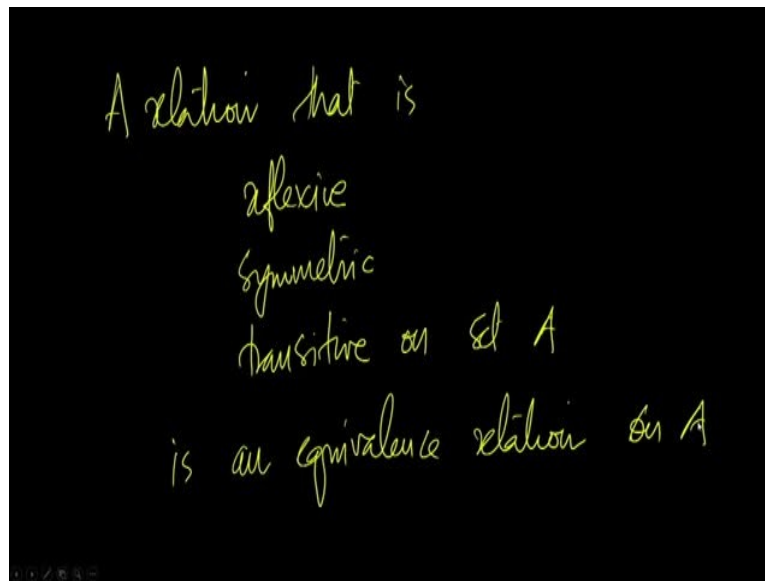 A relation that is
reflexive
symmetric
transitive on set A
is an equivalence relation on A